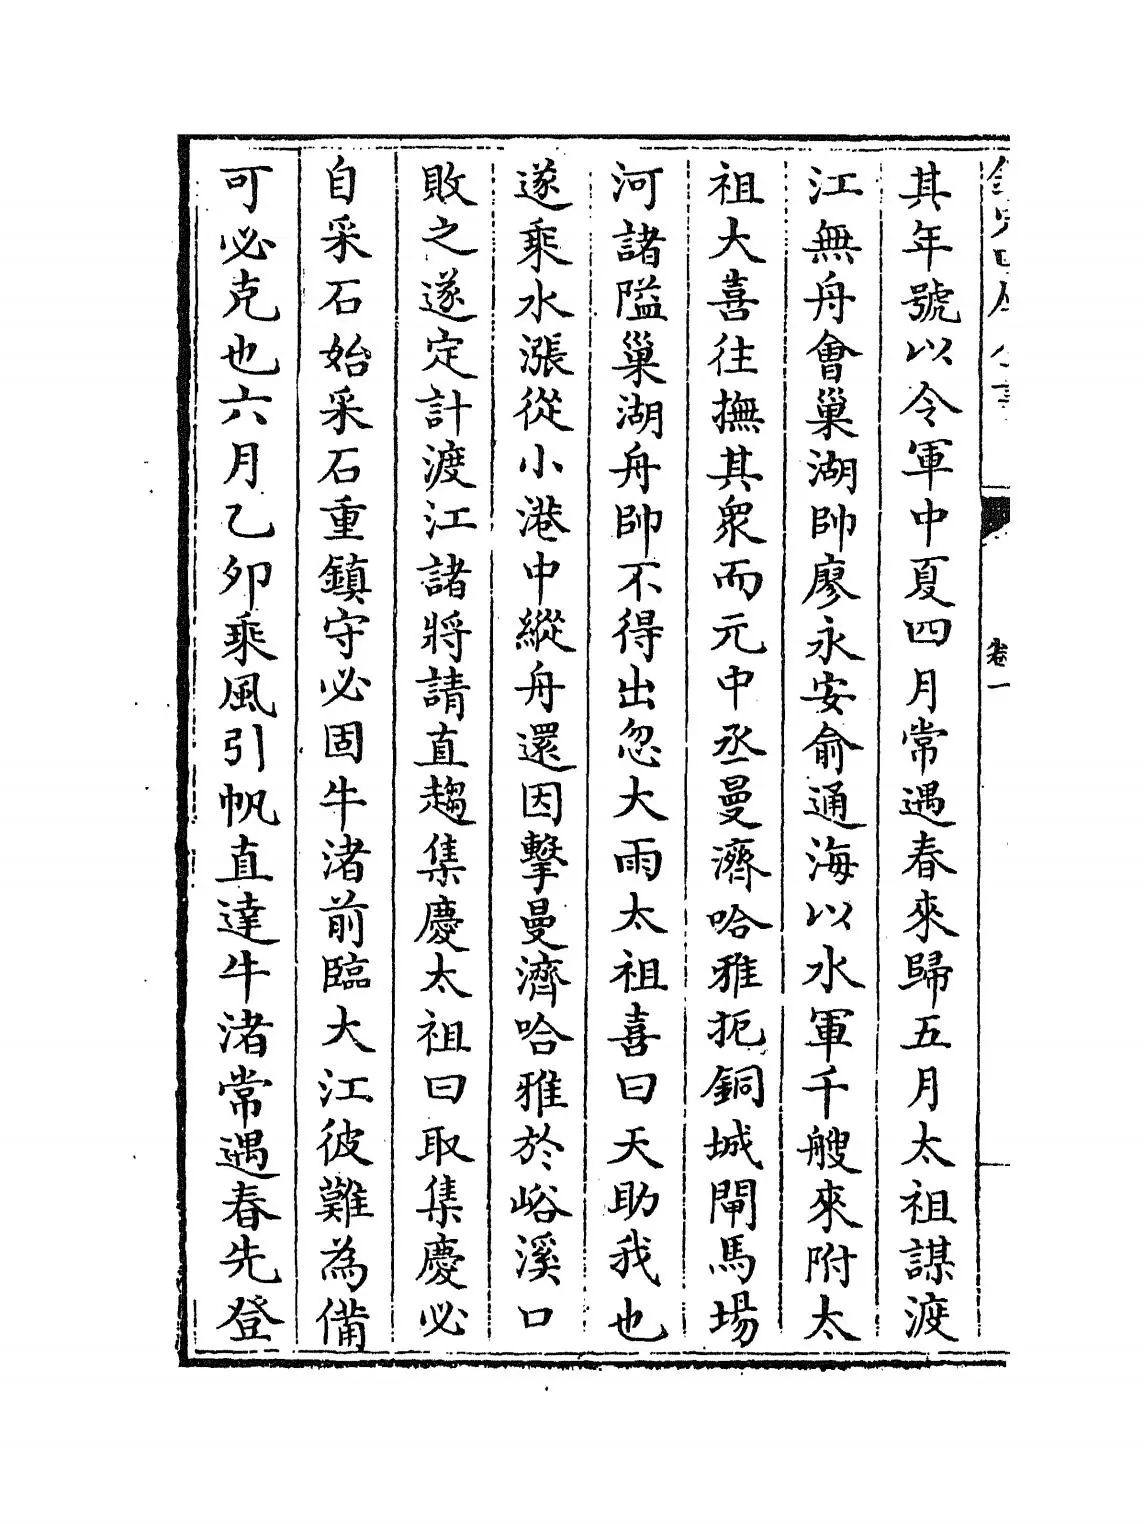 其年號以令軍中夏四月常遇春來歸五月太祖謀渡
江無舟會巢湖帥廖永安俞通海以水軍千艘來附太
祖大喜往撫其衆而元中丞曼濟哈雅扼銅城閘馬場
河諸隘巢湖舟帥不得出忽大雨太祖喜曰天助我也
遂乘水漲從小港中縱舟還因擊曼濟哈雅於峪溪口
敗之遂定計渡江諸將請直趨集慶太祖曰取集慶必
自采石始采石重鎮守必固牛渚前臨大江彼難為備
可必克也六月乙卯乘風引帆直達牛渚常遇春先登
卷一